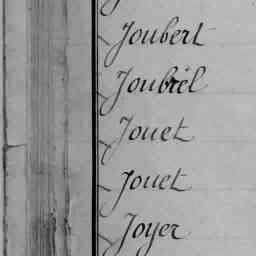 Joubert
Joubrel
Jouet
Jouet
Joyer